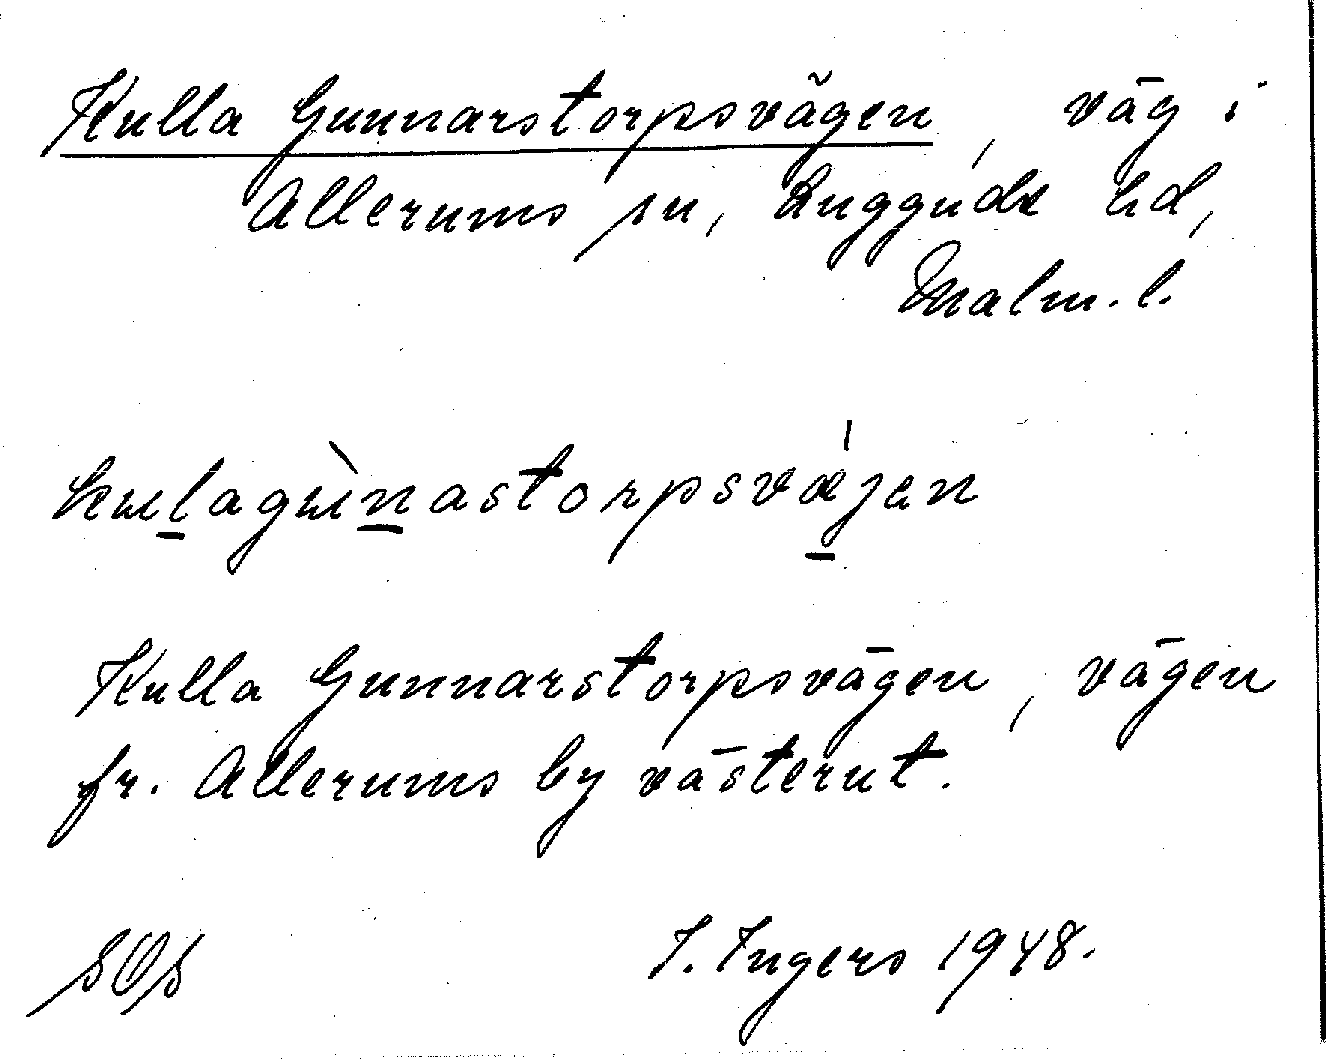 Kulla Gunnarstorpsvägen, väg i
Allerums sn, Luggude hd,
Malm. l.
kulagùnastorpsvæ̍jen
Kulla Gunnarstorpsvägen, vägen
fr. Allerums by västerut.
SOS I. Ingers 1948.